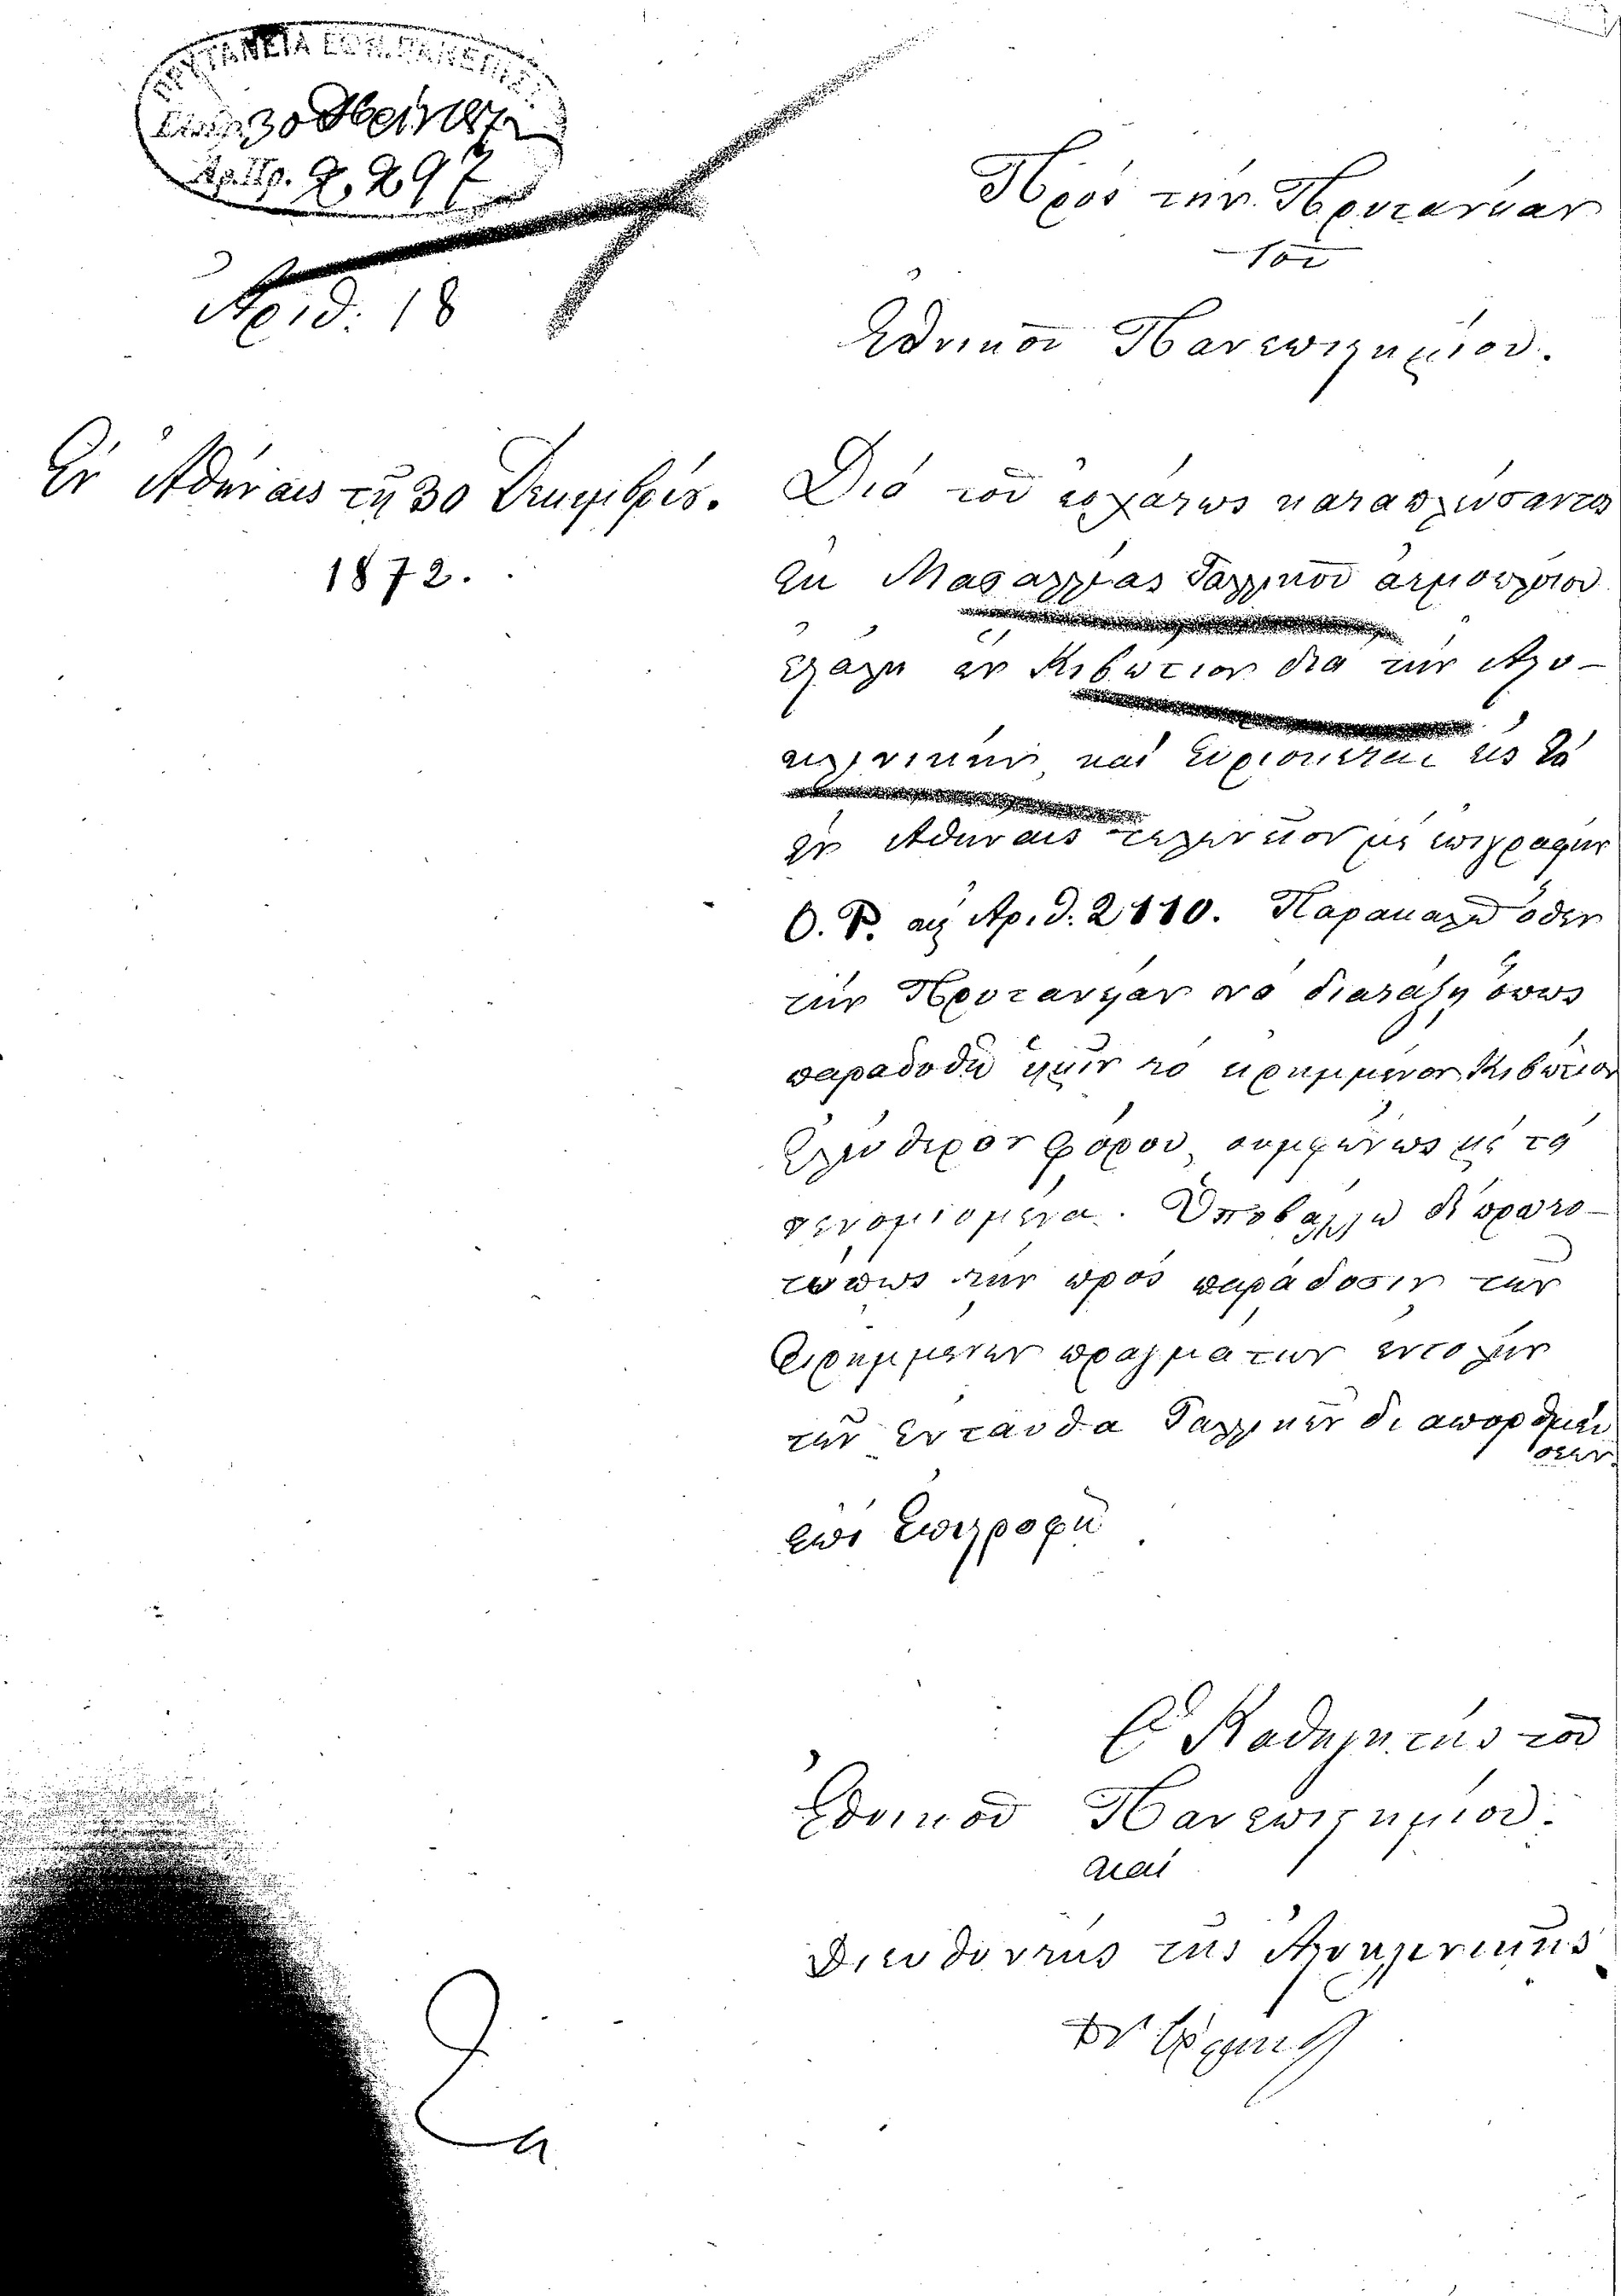 ΠΡΥΤΑΝΕΙΑ ΕΘΝ. ΠΑΝΕΠΙΣΤ.
30
Ἀρ.Πρ. 2,297
Ἀριθ: 18
Πρός τήν Πρυτανείαν
τοῦ
Ἐθνικοῦ Πανεπιστημίου.
Ἐν Ἀθήναις τῇ 30 Δεκεμβρίου.
1872.
Διά τοῦ ἐσχάτως καταπλεύσαντος
ἐκ Μασαλλίας Γαλλικοῦ ἀτμοπλοίου
ἐστάλη ἕν Κιβώτιον διά τήν Ἀστυ-
κλινικήν, καί εὑρίσκεται εἰς τό
ἐν Ἀθήναις τελωνεῖον μέ ἐπιγραφήν
O. P. καί Ἀριθ. 2110. Παρακαλῶ ὅθεν
τήν Πρυτανείαν νά διατάξῃ ὅπως
παραδοθῇ ἡμῖν τό εἰρημμένον Κιβώτιον
ἐλεύθερον φόρου, συμφώνως μέ τά
νενομισμένα. Ὑποβάλλω δέ πρωτο-
τύπως τήν πρός παράδοσιν τῶν
εἰρημμένων πραγμάτων ἐντολήν
τῶν ἐνταῦθα Γαλλικῶν διαπορθμεύ
σεων
ἐπί ἐπιστροφῇ.
Ὁ Καθηγητής τοῦ
Ἐθνικοῦ Πανεπιστημίου.
καί
Διευθυντής τῆς Ἀστυκλινικῆς